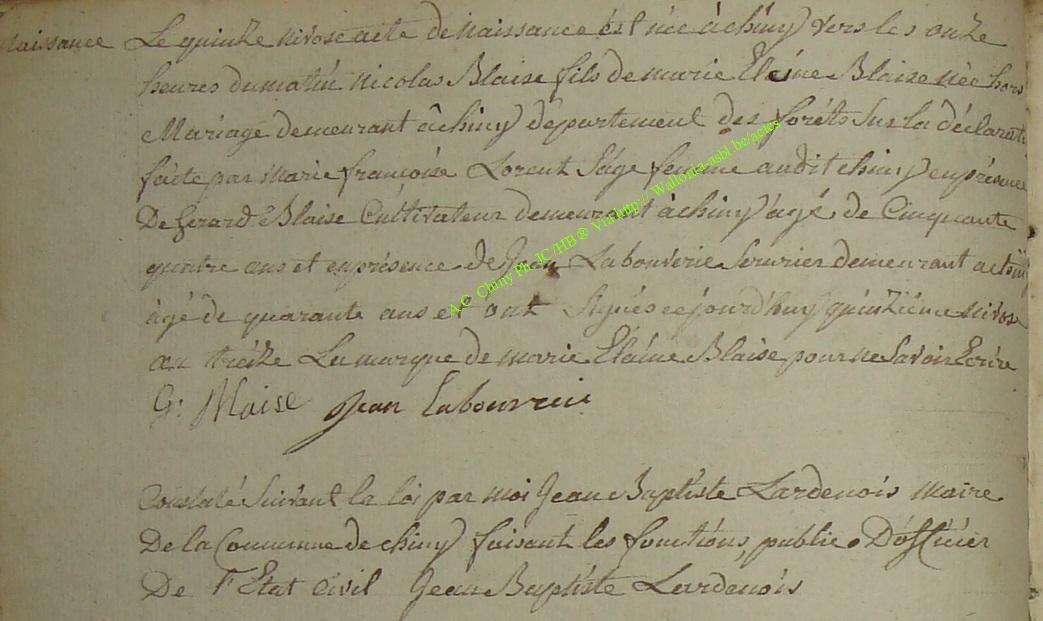 Naissance Le quinze nivose acte de Naissance est née à chiny vers les onze
heures du matin Nicolas Blaise fils de marie Eleine Blaise née hors
Mariage demeurant âchiny département des forêts Sur la déclarati
faite par Marie françoise Lorent Sage femme audit chiny en présence
De Gerard Blaise Cultivateur demeurant à chiny agé de Cinquante
quatre ans et en présence de Jean Labouverie Serurier demeurant
âgé de quarante ans et ont Signés cejourd'huy quinzième nivose
an treize La marque de marie Elèine Blaise pour ne Savoir Ecrire
G: Blaise Jean Labouverie
A.C Chiny Ph. JC /HB ® Via http:// Wallonia-asbl.be/actes
Constaté Suivant la loi par moi Jean Baptiste Lardenois maire
De la Commune de chiny faisant les fonctions public D'officier
De l'Etat Civil Jean Baptiste Lardenois